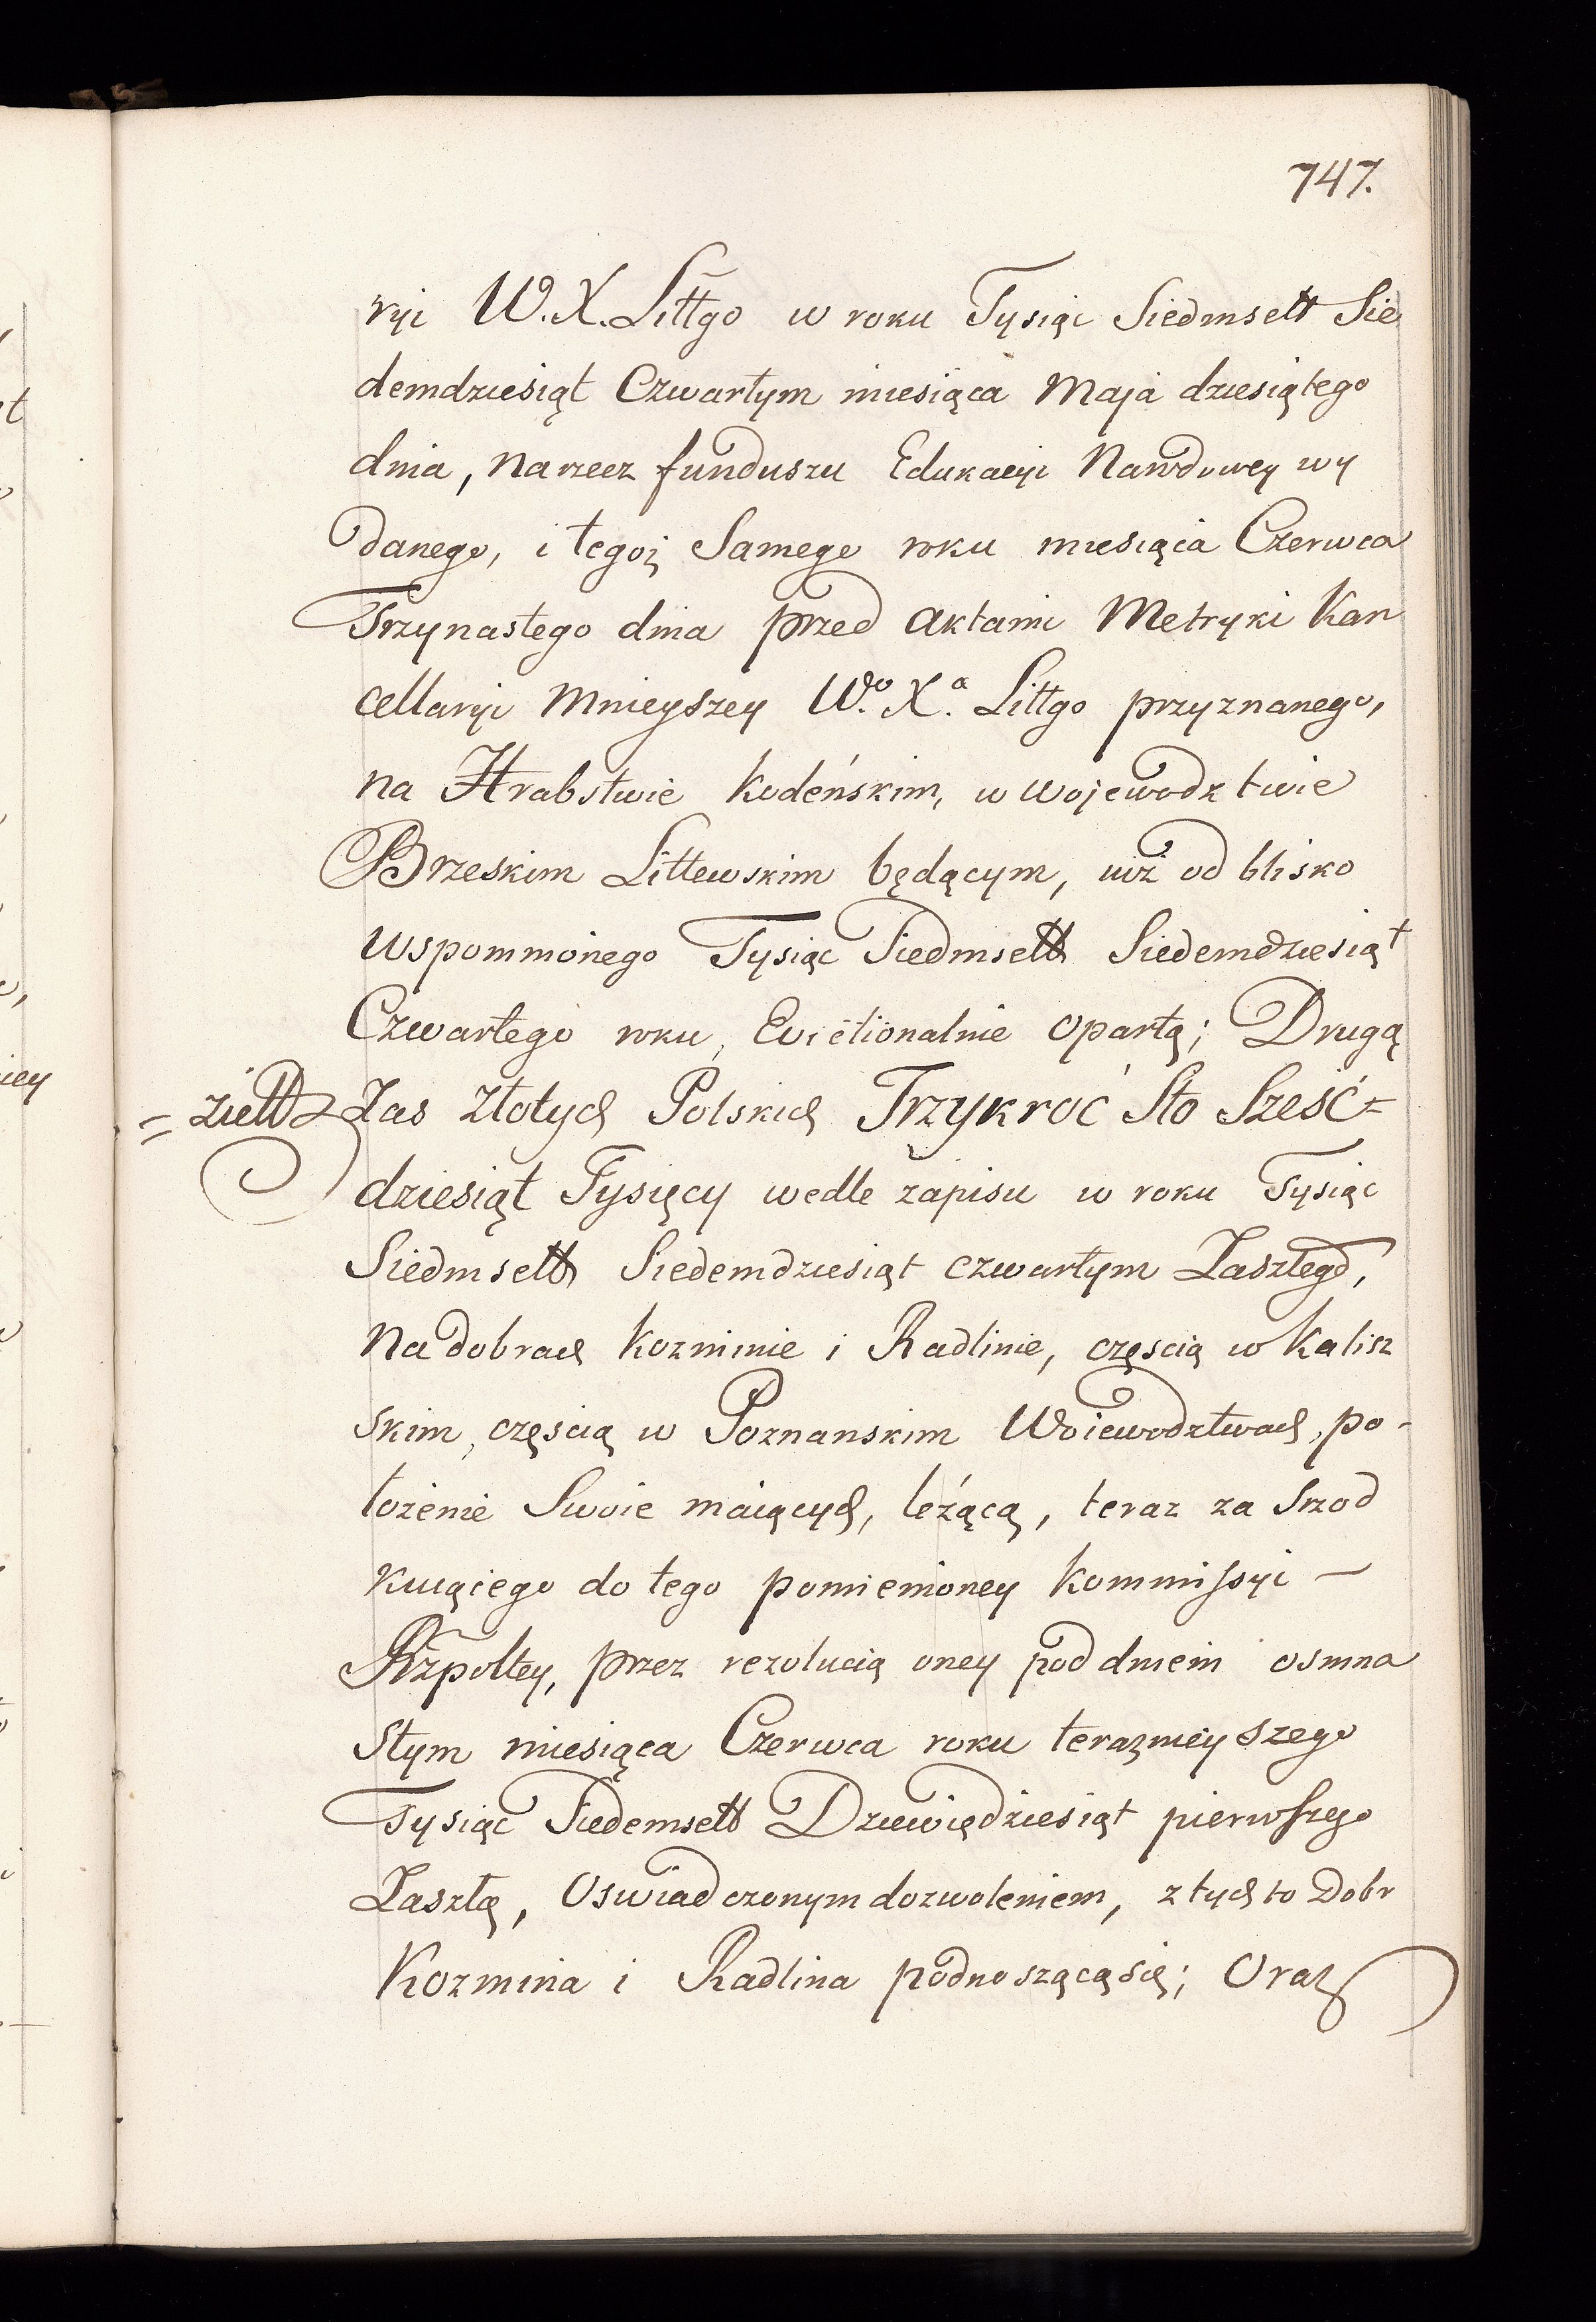 747.
ryi W. X. Littgo w roku Tysiąc Siedmsett Sie
demdziesiąt Czwartym miesiąca Maja dziesiątego
dnia, na rzecz funduszu Edukacyi Narodowey wy
danego, i tegoż Samego roku miesiąca Czerwca
Trzynastego dnia przed aktami Metryki Kan
cellaryi Mnieyszey Wo. Xa. Littgo przyznanego,
na Hrabstwie Kodeńskim, w Wojewodztwie
Brzeskim Littewskim będącym, iuż od blisko
wspomnionego Tysiąc Siedmsett Siedemdziesiąt
Czwartego roku, Evictionalnie opartą; Drugą
Zas Złotych Polskich Trzykroć Sto Sześć=
dziesiąt Tysięcy wedle zapisu w roku Tysiąc
Siedmsett Siedemdziesiąt czwartym Zaszłego,
na dobrach Kozminie i Radlinie, częscią w Kalisz
skim, częscią w Poznanskim Woiewodztwach, po-
łożenie Swoie maiących, leżącą, teraz za Srzod
kuiącego do tego pomienioney Kommissyi —
Rzpoltey, przez rezolucią oney pod dniem osmna
stym miesiąca Czerwca roku teraznieyszego
Tysiąc Siedemsett Dziewiędziesiąt pierwszego
Zaszłą, Oswiadczonym dozwoleniem, z tych to Dobr
Kozmina i Radlina podnoszącą się; Oraz